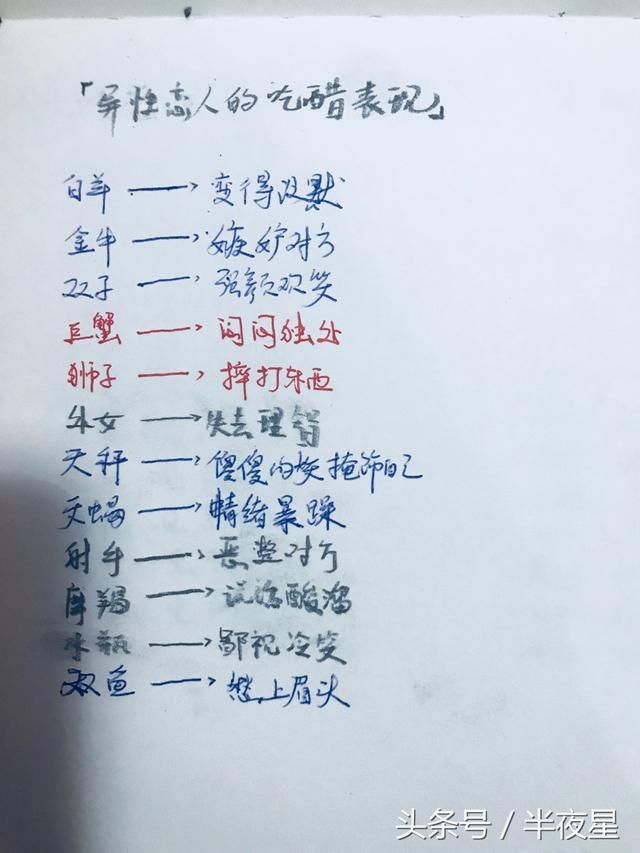 「异性恋人的吃醋表现」
白羊 → 变得沒默
金牛 → 嫉妒对方
双子 → 强颜欢笑
巨蟹 → 闷闷独处
狮子 → 摔打东西
处女 → 失去理智
天秤 → 傻傻的笑掩饰自己
天蝎 → 情绪暴躁
射手 → 恶整对方
摩羯 → 说话酸溜
水瓶 → 鄙视冷笑
双鱼 → 愁上眉头
头条号 / 半夜星